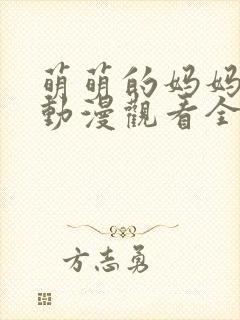 萌萌的妈妈
動漫觀看全
方志勇